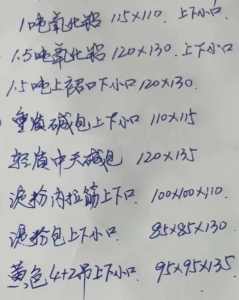 1吨氧化铝 115×110. 上下小口
1.5吨氧化铝 120×130. 上下小口
1.5吨上裙口下小口 120×130.
重质碱包上下小口 110×115
轻质中天碱包 120×135
淀粉内拉筋上下口. 100×100×110.
淀粉包上下小口. 85×85×130
黄色4+2吊上下小口. 95×95×135